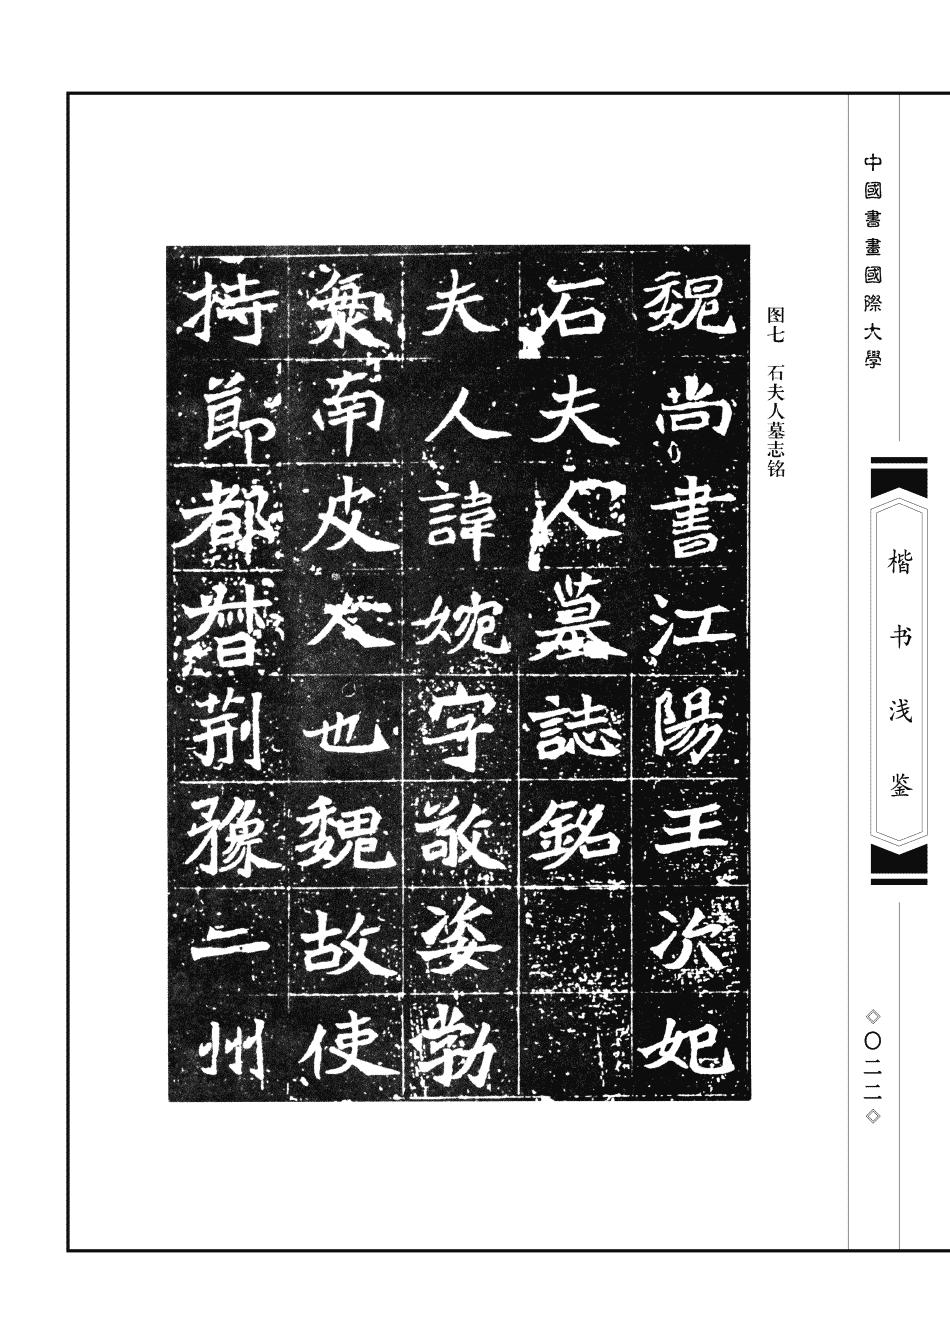 中國書畫國際大學
楷书浅鉴
◇〇二二◇
图七 石夫人墓志铭
魏尚書江陽王次妃
石夫人墓誌銘
夫人諱婉字敬姿勃
海南皮人也魏故使
持節都督荆豫二州